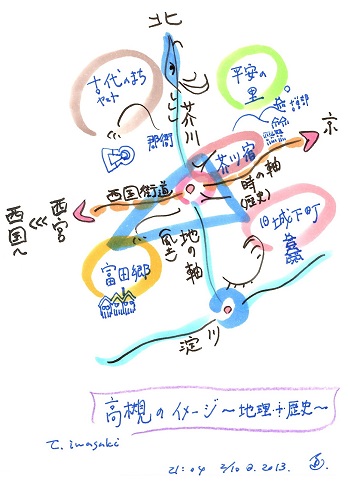 北
古代のまち
平安の
里
郡衙
芥川
芥川宿
京
西国街道
時の軸
(歴史)
西宮
西国へ
旧城下町
富田郷
地の軸
淀川
高槻のイメージ～地理+歴史～
T. iwasaki
21:04 2/10 2013.